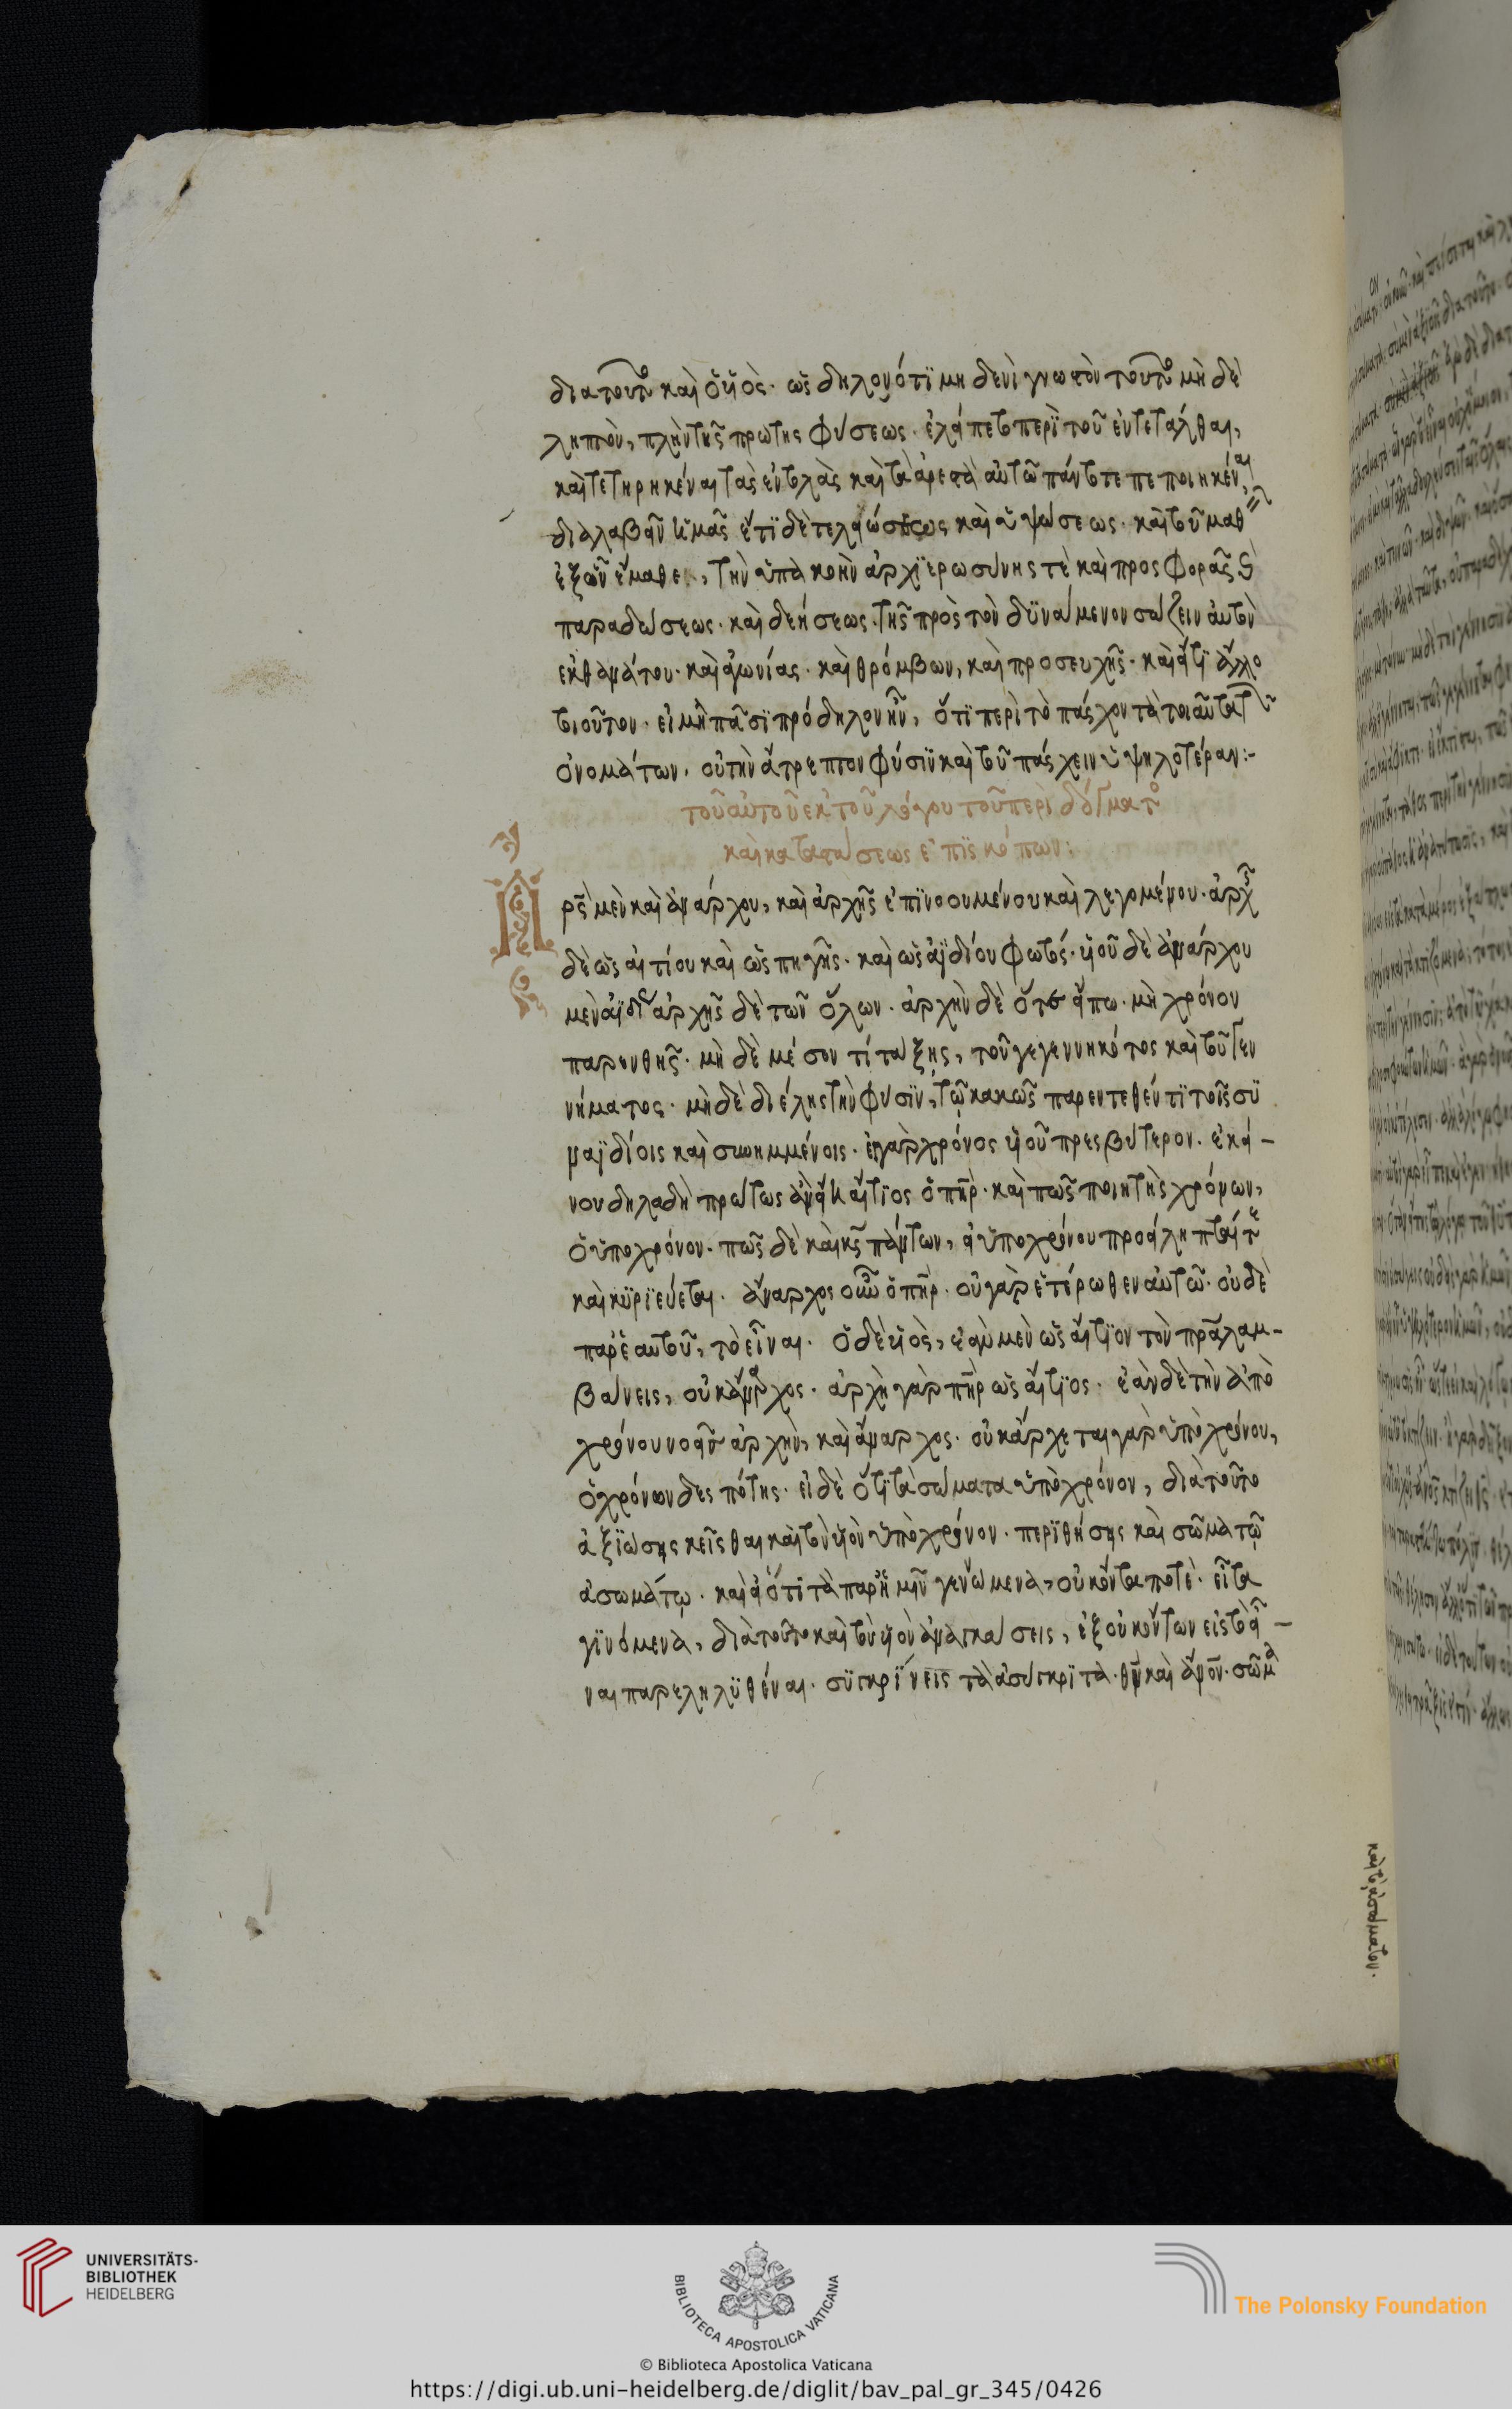 διατοῦτο καὶ ὁ υἱὸς· ὡς δηλονότι μηδενὶ γνωστὸν τοῦτο μὴ δὲ
ληπτὸν, πλὴν τῆς πρώτης φύσεως. ἐλείπετο περὶ τοῦ ἐντετάλθαι,
καὶ τετηρηκέναι τὰς ἐντολὰς καὶ τὰ ἀρεστὰ αὐτῶ πάντοτε πεποιηκέναι,
διαλαβεῖν ἡμᾶς ἔτι δὲ τελειώσεως καὶ ὑψώσεως· καὶ τοῦ μαθεῖν
ἐξ ὧν ἔμαθε, τὴν ὑπακοὴν ἀρχιερωσύνης τὲ καὶ προσφορᾶς καὶ
παραδώσεως· καὶ δεήσεως τῆς πρὸς τὸν δυνάμενον σώζειν αὐτὸν
ἐκ θανάτου· καὶ ἀγωνίας· καὶ θρόμβων, καὶ προσευχῆς· καὶ εἴ τι ἄλλο
τοιοῦτον· εἰ μὴ πᾶσι πρόδηλον ἦν, ὅτι περὶ τὸ πάσχον τὰ τοιαῦτα τῶν
ὀνομάτων, οὐ τὴν ἄτρεπτον φύσιν καὶ τοῦ πάσχειν ὑψηλοτέραν:-
τοῦ αὐτοῦ ἐκ τοῦ λόγου τοῦ περὶ δόγματος
καὶ καταστάσεως ἐπισκόπων:
Πρς μὲν καὶ ἀνάρχου, καὶ ἀρχῆς ἐπινοουμένου καὶ λεγομένου· ἀρχῆς
δὲ ὡς αἰτίου καὶ ὡς πηγῆς· καὶ ὡς ἀϊδίου φωτός· υἱοῦ δὲ ἀνάρχου
μὲν ἀϊδίου ἀρχῆς δὲ τῶν ὅλων· ἀρχὴν δὲ ὅταν εἴπω· μὴ χρόνον
παρενθῆς· μὴ δὲ μέσον τί τάξης, τοῦ γεγεννηκότος καὶ τοῦ γεν
νήματος· μὴ δὲ διέλης τὴν φύσιν, τῶ κακῶς παρεντεθέντι τοῖς συ
ναϊδίοις καὶ συνημμένοις· εἰ γὰρ χρόνος υἱοῦ πρεσβύτερον· ἐκεί-
νου δηλαδὴ πρώτως ἂν εἴη αἴτιος ὁ πηρ· καὶ πῶς ποιητὴς χρόνων,
ὁ ὑπο χρόνον· πῶς δὲ καὶ κς πάντων, εἰ ὑπο χρόνου προείληπταί τε
καὶ κυριεύεται. ἄναρχος οὖν ὁ πηρ· οὐ γὰρ ἑτέρωθεν αὐτῶ· οὐδὲ
παρ' ἑαυτοῦ, τὸ εἶναι. ὁ δὲ υἱὸς, ἐὰν μὲν ὡς αἴτιον τὸν πρα λαμ-
βάνεις, οὐκ ἄναρχος· ἀρχὴ γὰρ πηρ ὡς αἴτιος· ἐὰν δὲ τὴν ἀπὸ
χρόνου νοεῖς ἀρχὴν, καὶ ἄναρχος· οὐκ ἄρχεται γὰρ ὑπὸ χρόνου,
ὁ χρόνων δεσπότης· εἰ δὲ ὅτι τὰ σώματα ὑπὸ χρόνον, διὰ τοῦτο
ἀξιώσης κεῖσθαι καὶ τὸν υἱὸν ὑπὸ χρόνον· περιθήσης καὶ σῶμα τῶ
ἀσωμάτω· καὶ εἰ ὅτι τὰ παρ' ἡμῖν γενόμενα, οὐκ ὄντα ποτὲ· εἶτα
γινόμενα, διὰ τοῦτο καὶ τὸν υἱὸν ἀναγκάσεις, ἐξ οὐκ ὄντων εἰς τὸ εἶ-
ναι παρεληλυθέναι· συγκρίνεις τὰ ἀσύγκριτα· θν καὶ ἄνον· σῶμα
UNIVERSITÄTS-
BIBLIOTHEK
HEIDELBERG
BIBLIOTECA APOSTOLICA VATICANA
The Polonsky Foundation
© Biblioteca Apostolica Vaticana
https://digi.ub.uni-heidelberg.de/diglit/bav_pal_gr_345/0426